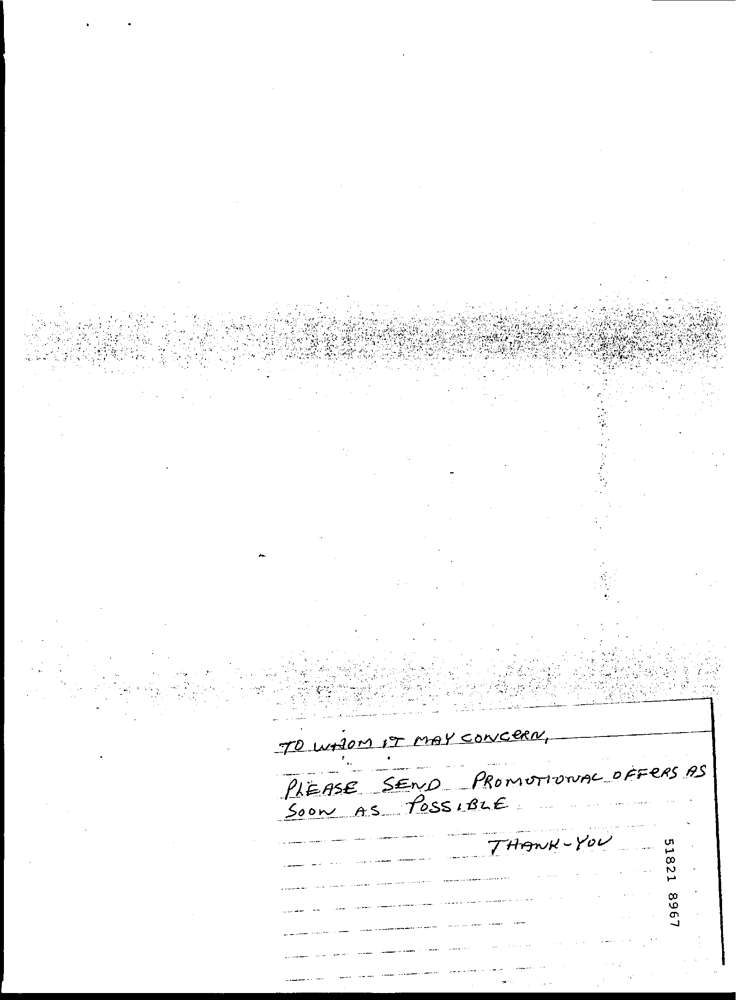 TO WHOM IT MAY CONCERN,
PLEASE SEND PROMOTIONAL OFFERS AS
SOON AS POSSIBLE
THANK-YOU
51821 8967